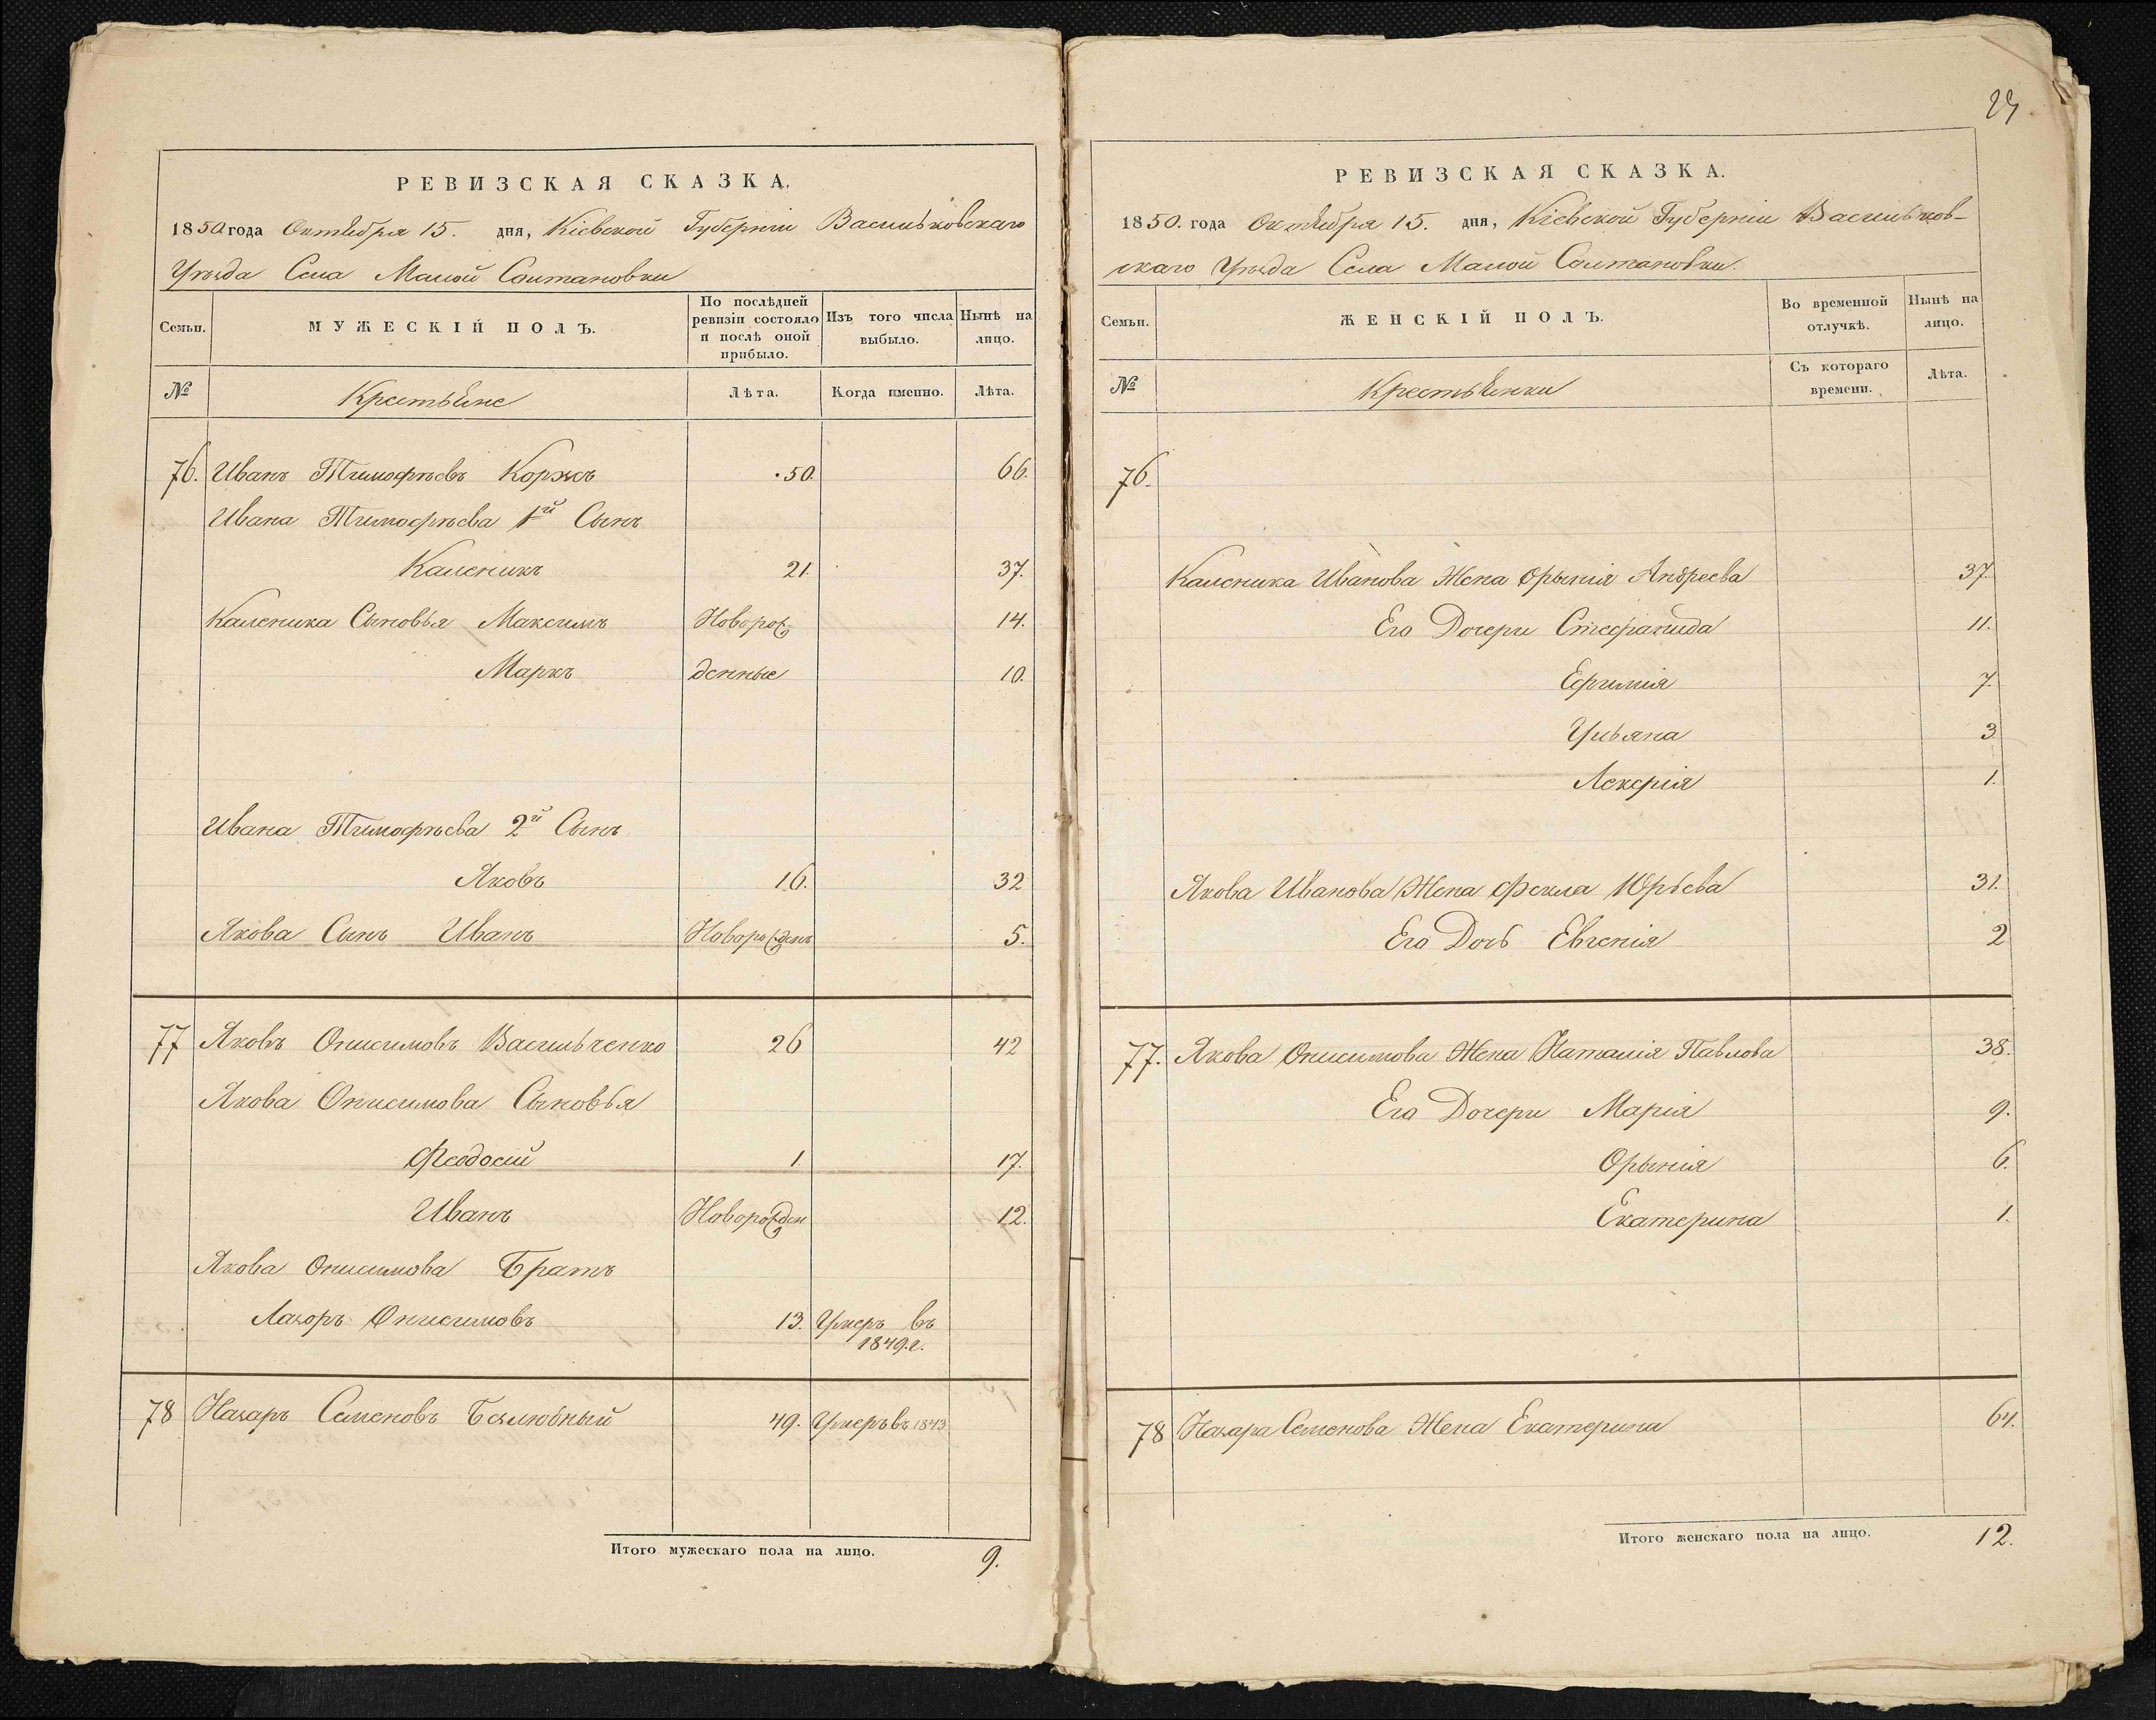 РЕВИЗСКАЯ СКАЗКА.
1850 года Октября 15. дня, Кіевской Губерніи Васильковскаго
Уѣзда Села Малой Солтановки
Семьи.
МУЖЕСКІЙ ПОЛЪ.
По послѣдней ревизіи состояло и послѣ оной прибыло.
Изъ того числа выбыло.
Нынѣ на лицо.
№
Крестьяне
Лѣта.
Когда именно.
Лѣта.
76. Иванъ Тимофѣевъ Коржъ 50. 66.
Ивана Тимофѣева 1й Сынъ
Каленикъ 21. 37.
Каленика Сыновья Максимъ Новорож 14.
Маркъ денные 10.
Ивана Тимофѣева 2й Сынъ
Яковъ 16. 32
Якова Сынъ Иванъ Новорожденъ 5.
77 Яковъ Онисимовъ Васильченко 26 42
Якова Онисимова Сыновья
Феодосій 1. 17.
Иванъ Новорожден 12.
Якова Онисимова Братъ
Лазоръ Онисимовъ 13. Умеръ въ
1849.г.
78 Назаръ Семеновъ Безлюбный 49. Умеръ въ 1843
Итого мужескаго пола на лицо. 9.
РЕВИЗСКАЯ СКАЗКА.
1850. года Октября 15. дня, Кіевской Губерніи Васильков-
скаго Уѣзда Села Малой Солтановки.
Семьи.
ЖЕНСКІЙ ПОЛЪ.
Во временной отлучкѣ.
Нынѣ на лицо.
№
Крестьянки
Съ котораго времени.
Лѣта.
76.
Каленика Иванова Жена Орынія Андреева 37.
Его Дочери Стефанида 11.
Ефимія 7.
Ульяна 3
Лекерія 1.
Якова Иванова Жена Фекла Юрьева 31.
Его Дочь Евгенія 2
77. Якова Онисимова Жена Наталія Павлова 38.
Его Дочери Марія 9.
Орынія 6.
Екатерина 1.
78 Назара Семенова Жена Екатерина 64.
Итого женскаго пола на лицо. 12.